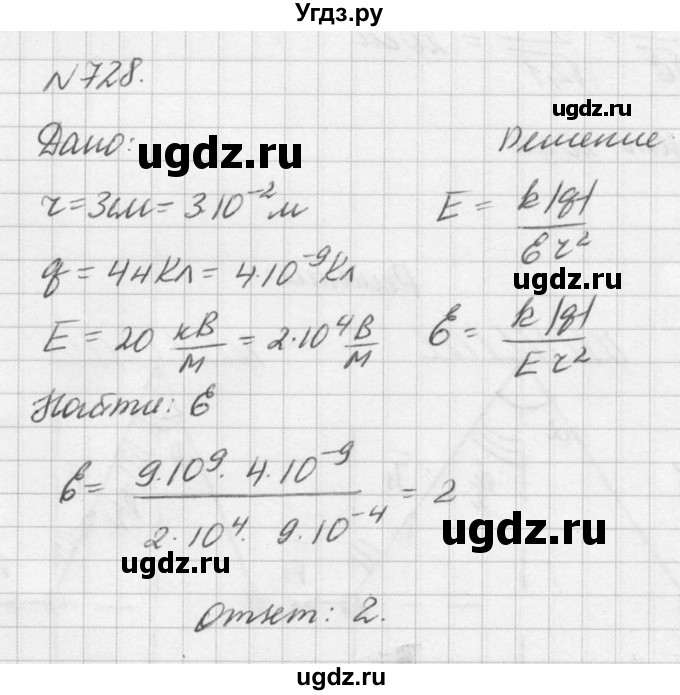 Угдз.ру
N728.
ugdz.ru
Дано:
ugdz.ru
Решение
r=3см=3·10⁻²м
E = k|q|/εr²
q = 4нКл = 4·10⁻⁹Кл
ugdz.ru
E = 20 кВ/м = 2·10⁴ В/м
ε = k|q|/Er²
Найти: ε
ε = 9·10⁹· 4·10⁻⁹ / 2·10⁴· 9·10⁻⁴ = 2
ugdz.ru
ugdz.ru
Ответ: 2.
ugdz.ru